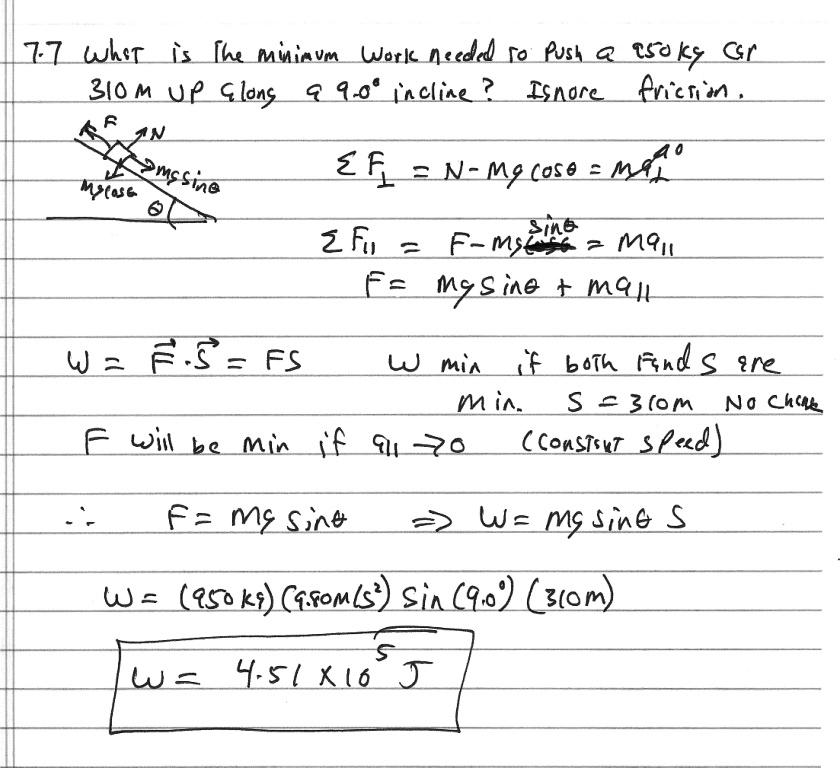 7.7 What is The minimum Work needed To Push a 950 kg Car
310 m up along a 9.0° incline? Ignore friction.
F
N
mg sinθ
mg cosθ
θ
Σ F⊥ = N - mg cosθ = ma⊥ 0
sinθ
Σ F∥ = F - mg = ma∥
F = mg sinθ + ma∥
W = F⃗ · S⃗ = FS W min if both F and S are
min. S = 310m No choice
F will be min if a∥ → 0 (constant speed)
∴ F = mg sinθ ⇒ W = mg sinθ S
W = (950 kg) (9.80 m/s²) sin (9.0°) (310m)
W = 4.51 × 10⁵ J